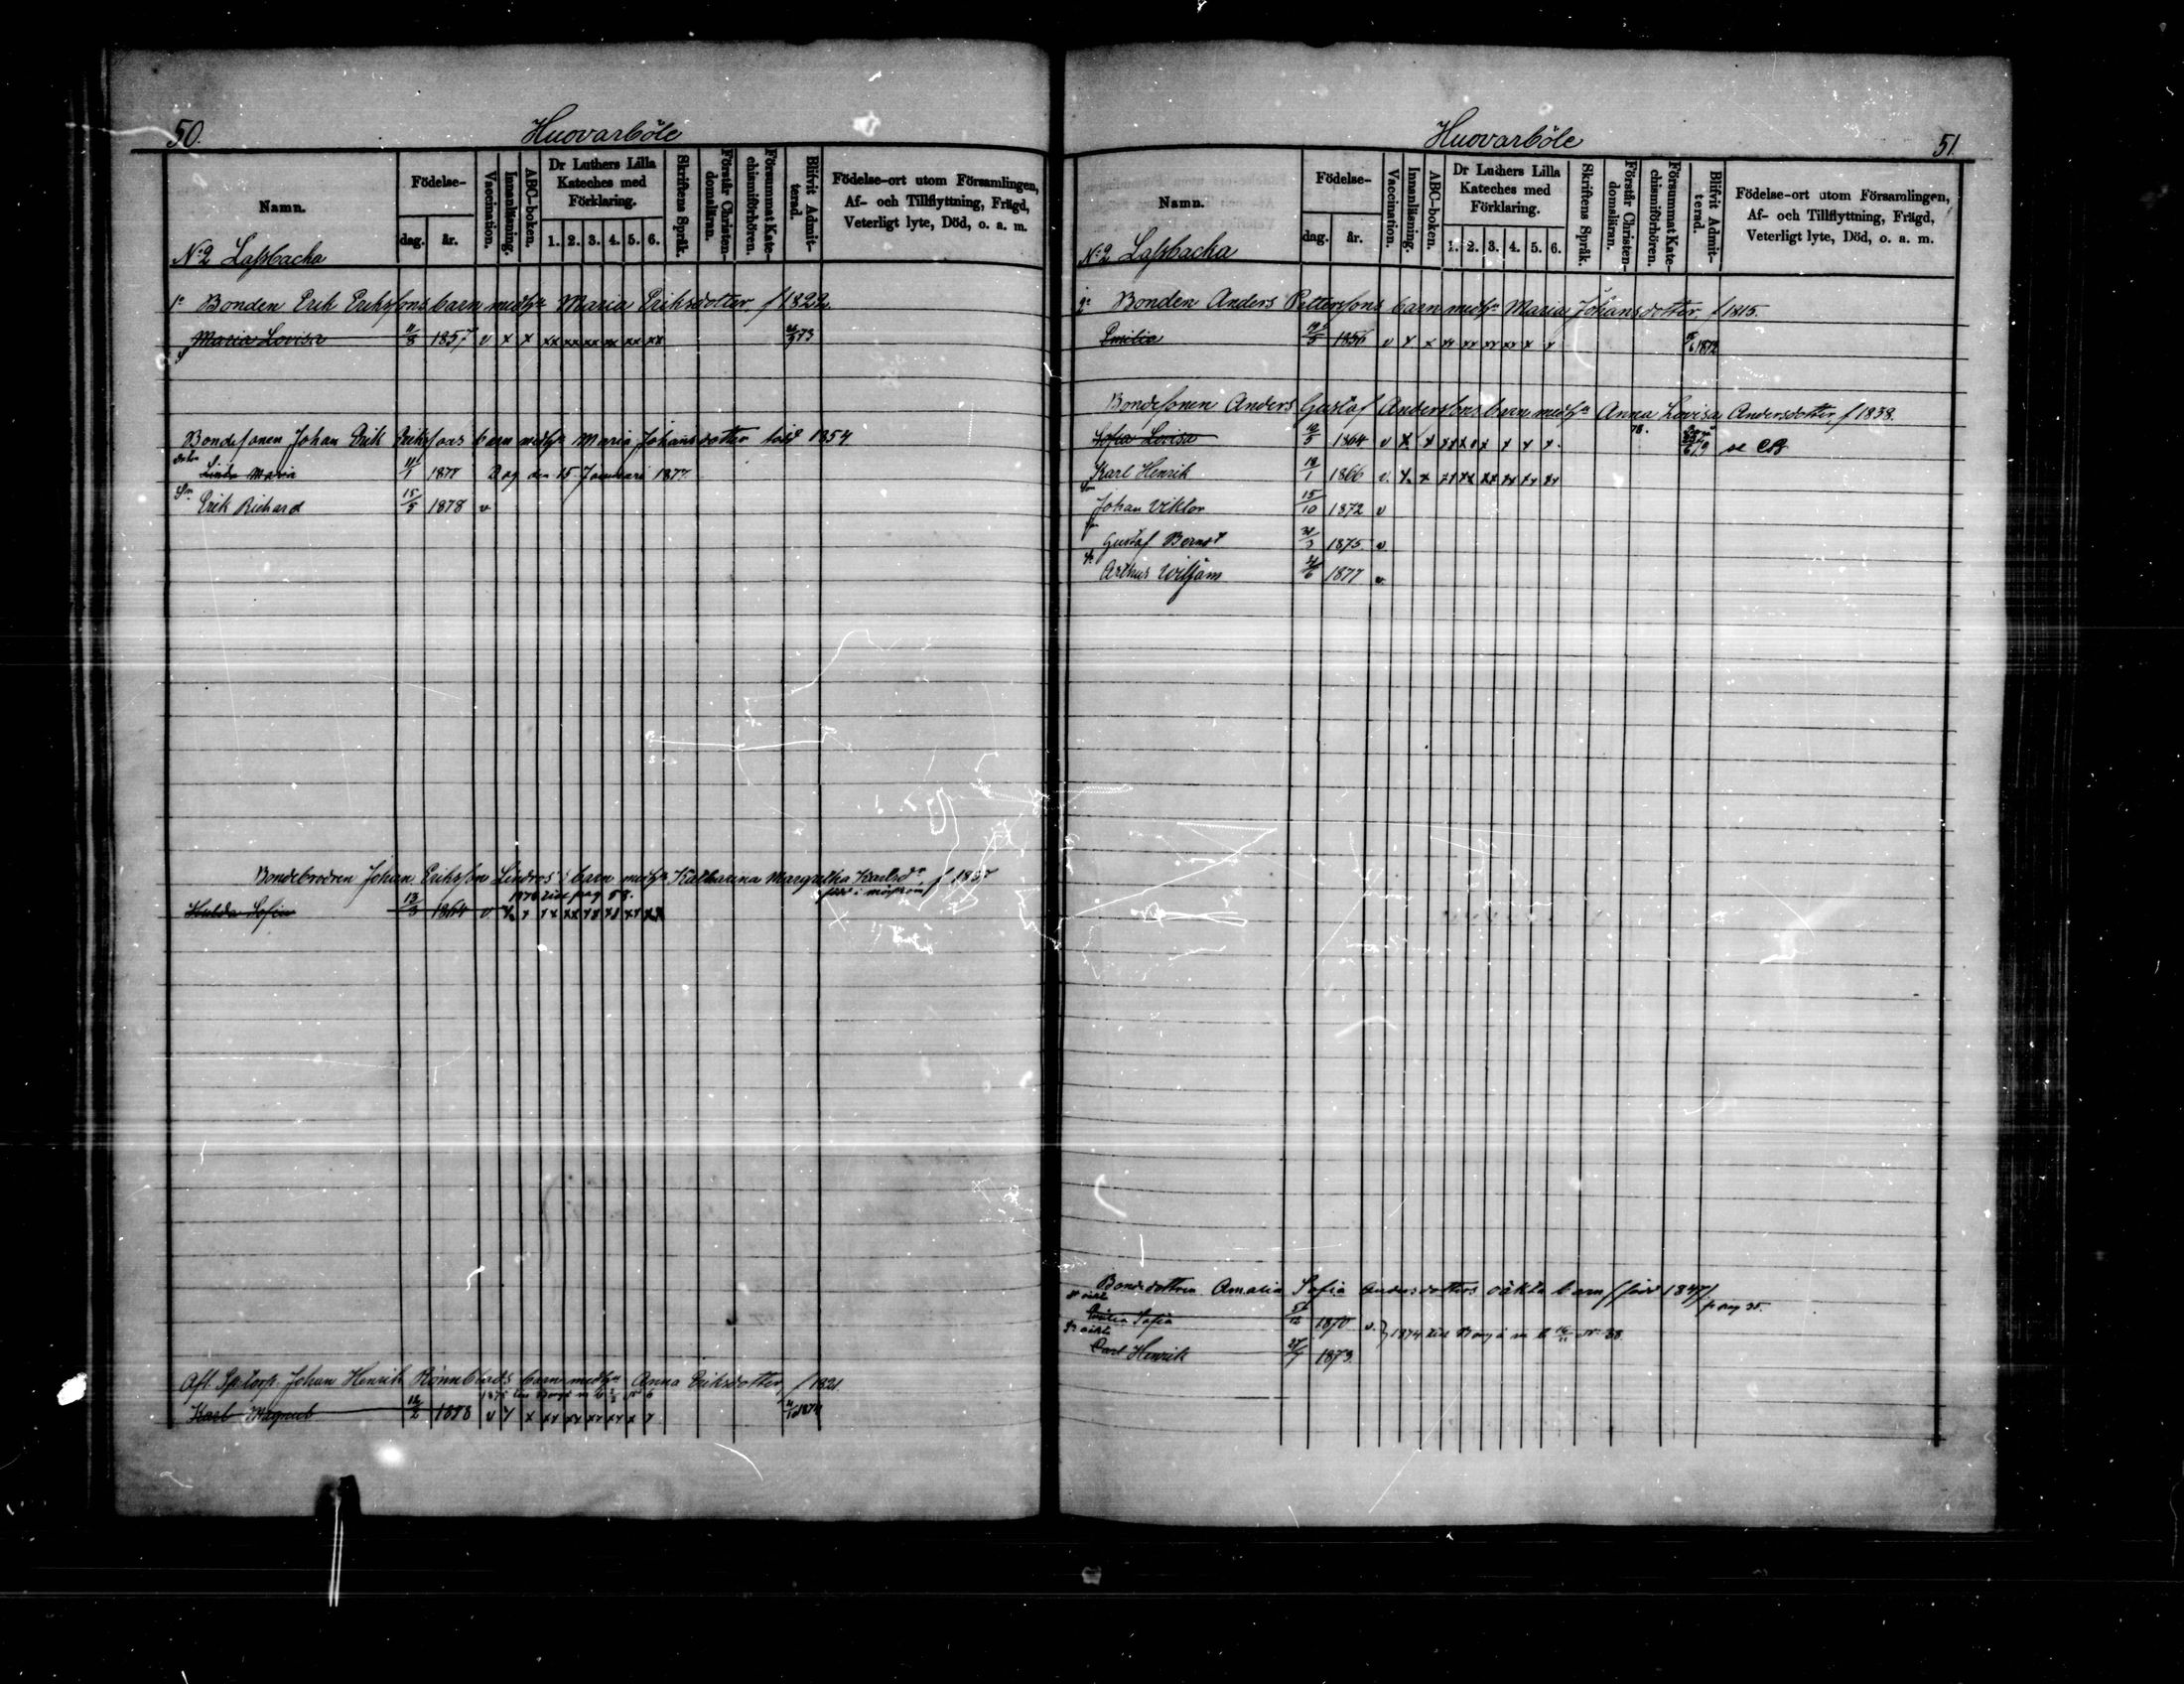 50.
Huovarböle
Namn.
Födelse-
dag. år.
Vaccination.
Innanläsning.
ABC-boken.
Dr Luthers Lilla Kateches med Förklaring.
1. 2. 3. 4. 5. 6.
Skriftens Språk.
Förstår Christendomsläran.
Försummat Katechismiförhören.
Blifvit Admitterad.
Födelse-ort utom Församlingen,
Af- och Tillflyttning, Frägd,
Veterligt lyte, Död, o. a. m.
No 2 Lassbacka
1o Bonden Erik Erikssons barn med h. Maria Eriksdotter, f 1822.
Maria Lovisa 11/8 1857 v x x xx xx xx xx xx xx 73
Bondesonen Johan Erik Erikssons barn med h. Maria Johansdotter född 1854
Linda Maria 11/1 1877 Dog den 15 Januari 1877.
Erik Richard 15/5 1878 v
Bondebrodren Johan Eriksson Lindros' barn med h. Katharina Margretha Karlsdr f 1837
1876 vide pag 58.
Hulda Sofia 13/3 1864 v x x xx xx xx xx xx xx
Afl. Sp.torp. Johan Henrik Rönnblads barn med h. Anna Eriksdotter, f 1821
Karl Magnus 12/2 1858 v x x xx xx xx xx x x 1874
51.
Huovarböle
Namn.
Födelse-
dag. år.
Vaccination.
Innanläsning.
ABC-boken.
Dr Luthers Lilla Kateches med Förklaring.
1. 2. 3. 4. 5. 6.
Skriftens Språk.
Förstår Christendomsläran.
Försummat Katechismiförhören.
Blifvit Admitterad.
Födelse-ort utom Församlingen,
Af- och Tillflyttning, Frägd,
Veterligt lyte, Död, o. a. m.
No 2 Lassbacka
2o Bonden Anders Petterssons barn med h. Maria Johansdotter, f 1815.
Emilia 1856 v x x xx xx xx xx x x 1872
Bondesonen Anders Gustaf Anderssons barn med h. Anna Lovisa Andersdotter, f 1838.
Sofia Lovisa 10/5 1864 v x x xx x x x x x 78. 79 se CB
Karl Henrik 13/1 1866 v. x x xx xx xx xx xx xx
Johan Viktor 15/10 1872 v
Gustaf Berndt 31/3 1875. v
Arthur Wiljam 21/6 1877 v.
Bondedottren Amalia Sofia Andersdotters oäkta barn (född 1847) pag 35.
Emilia Sofia 5/12 1870 v.
1874 till Borgå
Carl Henrik 27/7 1873.